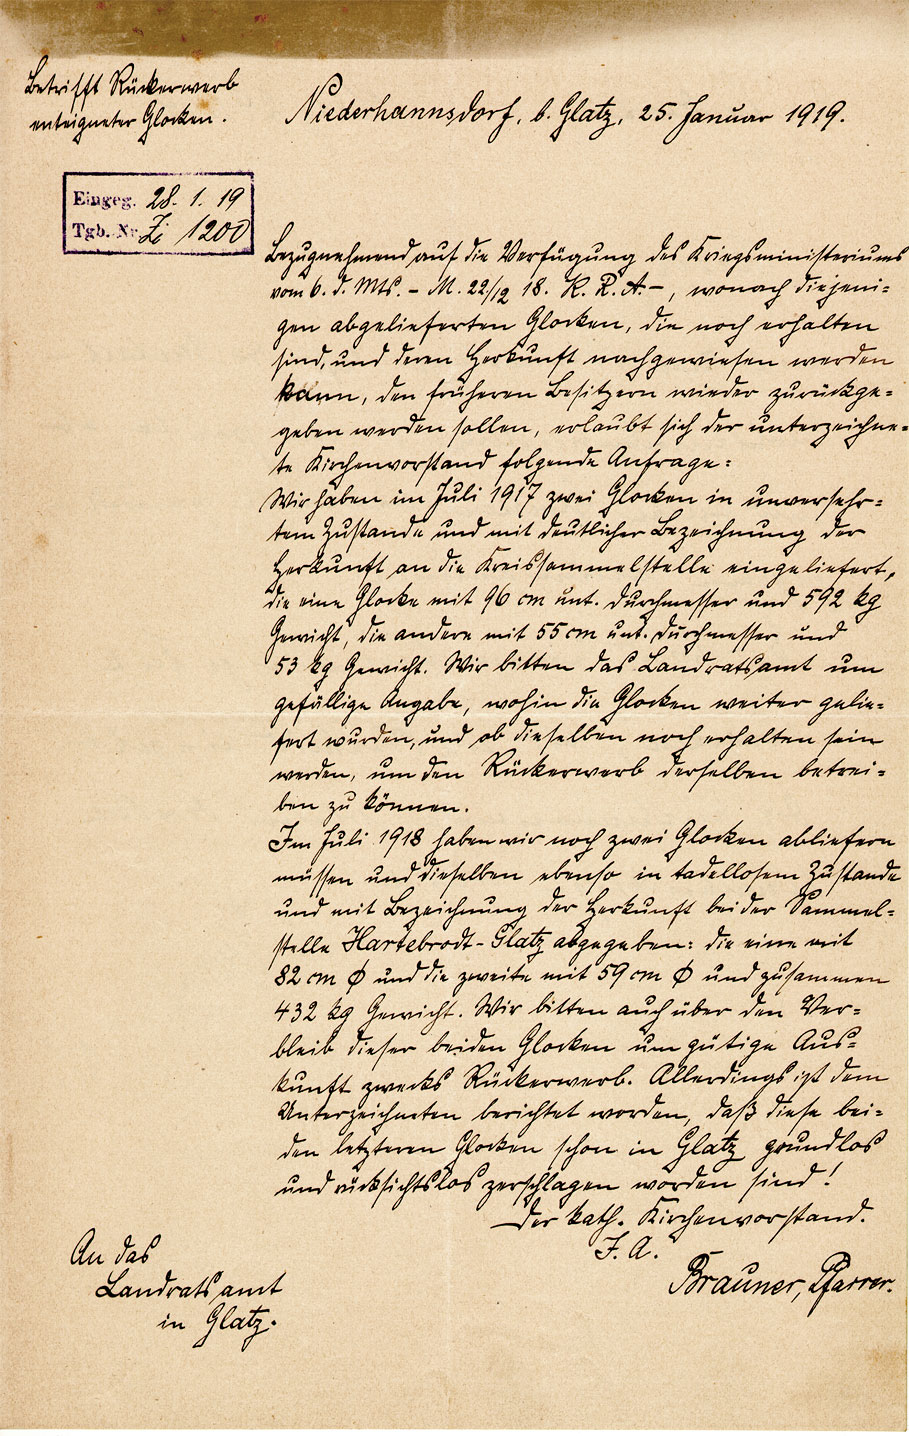 Betrifft Rückerwerb
enteigneter Glocken.
Niederhannsdorf, b. Glatz, 25. Januar 1919.
Eingeg. 28. 1. 19
Tgb. Nr. Zi 1200
Bezugnehmend auf die Verfügung des Kriegsministeriums
vom 6. d. Mts. - M. 22/12 18. K. R. A. -, wonach diejeni-
gen abgelieferten Glocken, die noch erhalten
sind, und deren Herkunft nachgewiesen werden
kann, den früheren Besitzern wieder zurückge-
geben werden sollen, erlaubt sich der unterzeichne-
te Kirchenvorstand folgende Anfrage:
Wir haben im Juli 1917 zwei Glocken in unversehr-
tem Zustande und mit deutlicher Bezeichnung der
Herkunft an die Kreissammelstelle eingeliefert,
die eine Glocke mit 96 cm unt. Durchmesser und 592 kg
Gewicht, die andere mit 55 cm unt. Durchmesser und
53 kg Gewicht. Wir bitten das Landratsamt um
gefällige Angabe, wohin die Glocken weiter gelie-
fert wurden, und ob dieselben noch erhalten sein
werden, um den Rückerwerb derselben betrei-
ben zu können.
Im Juli 1918 haben wir noch zwei Glocken abliefern
müssen und dieselben ebenso in tadellosem Zustande
und mit Bezeichnung der Herkunft bei der Sammel-
stelle Hartebrodt-Glatz abgegeben: die eine mit
82 cm Ø und die zweite mit 59 cm Ø und zusammen
432 kg Gewicht. Wir bitten auch über den Ver-
bleib dieser beiden Glocken um gütige Aus-
kunft zwecks Rückerwerb. Allerdings ist dem
Unterzeichneten berichtet worden, daß diese bei-
den letzteren Glocken schon in Glatz grundlos
und rücksichtslos zerschlagen worden sind!
Der kath. Kirchenvorstand.
I. A.
Brauner, Pfarrer.
An das
Landratsamt
in Glatz.